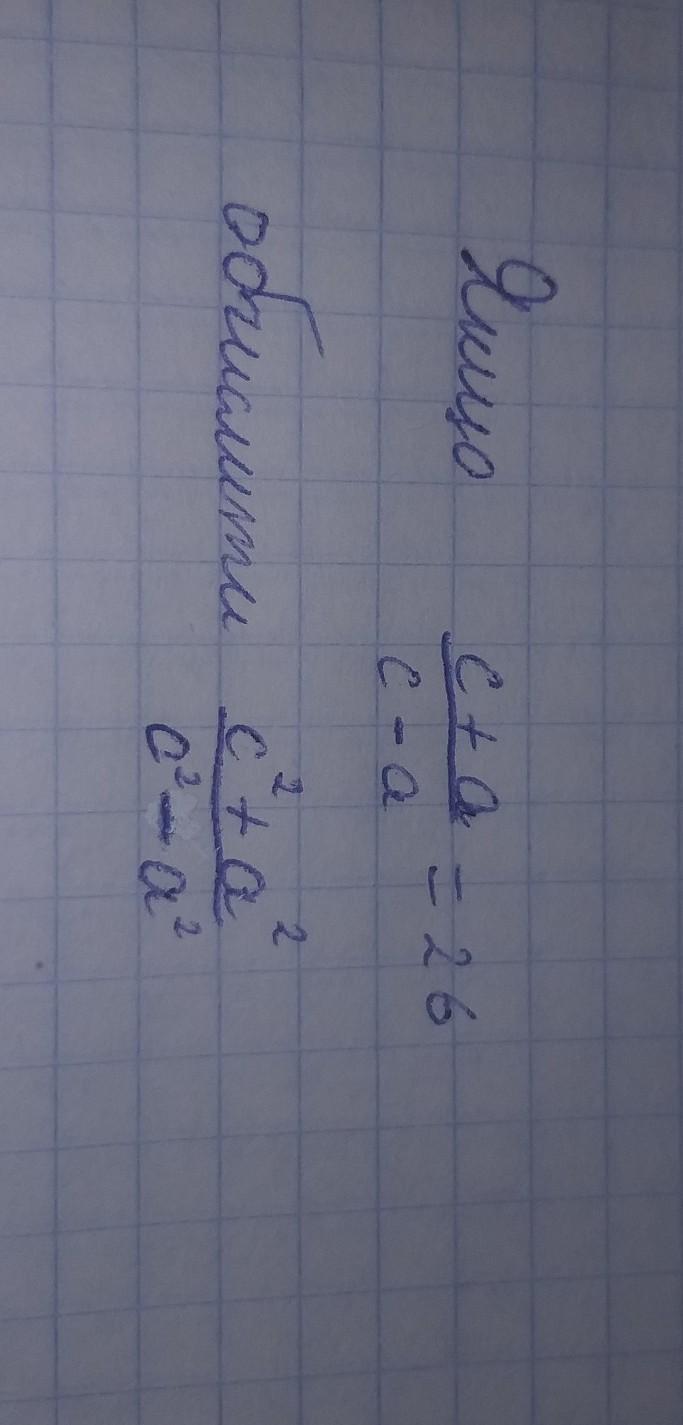 Якщо c + a / c - a = 26
обчислити c² + a² / c² - a²